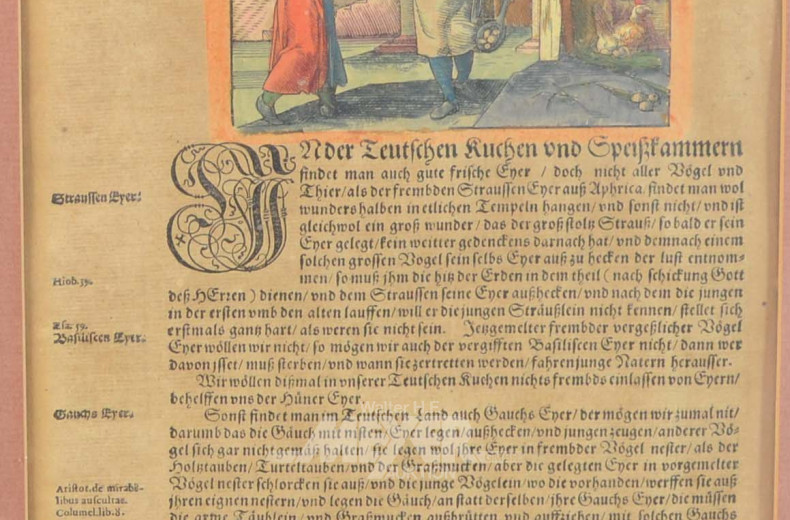 INder Teutschen Kuchen vnd Speißkammern
findet man auch gute frische Eyer / doch nicht aller Vögel vnd
Straussen Eyer.
Thier/als der frembden Straussen Eyer auß Aphrica, findet man wol
wunders halben in etlichen Tempeln hangen/ vnd sonst nicht/ vnd ist
gleichwol ein groß wunder/ das der groß stoltz Strauß/ so bald er sein
Eyer gelegt/ kein weitter gedenckens darnach hat/ vnd demnach einem
solchen grossen Vogel sein selbs Eyer auß zu hecken der lust entnom-
Hiob.39.
men/ so muß jhm die hitz der Erden in dem theil ( nach schickung Gott
deß HErren ) dienen/ vnd dem Straussen seine Eyer außhecken/ vnd nach dem die jungen
in der ersten vmb den alten lauffen/ will er die jungen Sträußlein nicht kennen/ stellet sich
Esa. 59.
erstmals gantz hart/ als weren sie nicht sein. Jetzgemelter frembder vergeßlicher Vögel
Basiliscen Eyer.
Eyer wöllen wir nicht/ so mögen wir auch der vergifften Basiliscen Eyer nicht/ dann wer
davon jsset/ muß sterben/ vnd wann sie zertretten werden/ fahren junge Natern herausser.
Wir wöllen dißmal in vnserer Teutschen Kuchen nichts frembds einlassen von Eyern/
behelffen vns der Hüner Eyer.
Gauchs Eyer.
Sonst findet man im Teutschen Land auch Gauchs Eyer/ der mögen wir zumal nit/
darumb das die Gäuch mit nisten/ Eyer legen/ außhecken/ vnd jungen zeugen/ anderer Vö-
gel sich gar nicht gemäß halten/ sie legen wol jhre Eyer in frembder Vögel nester/ als der
Holtztauben/ Turteltauben/ vnd der Graßmucken/ aber die gelegten Eyer in vorgemelter
Aristot.de mirabi-
libus auscultat.
Columel.lib.8.
Vögel nester schlorcken sie auß/ vnd die junge Vögelein/ wo die vorhanden/ werffen sie auß
jhren eignen nestern/ vnd legen die Gäuch/ an statt derselben/ jhre Gauchs Eyer/ die müssen
die arme Täublein/ vnd Graßmucken außbrütten/ vnd aufziehen/ mit solchen Gauchs